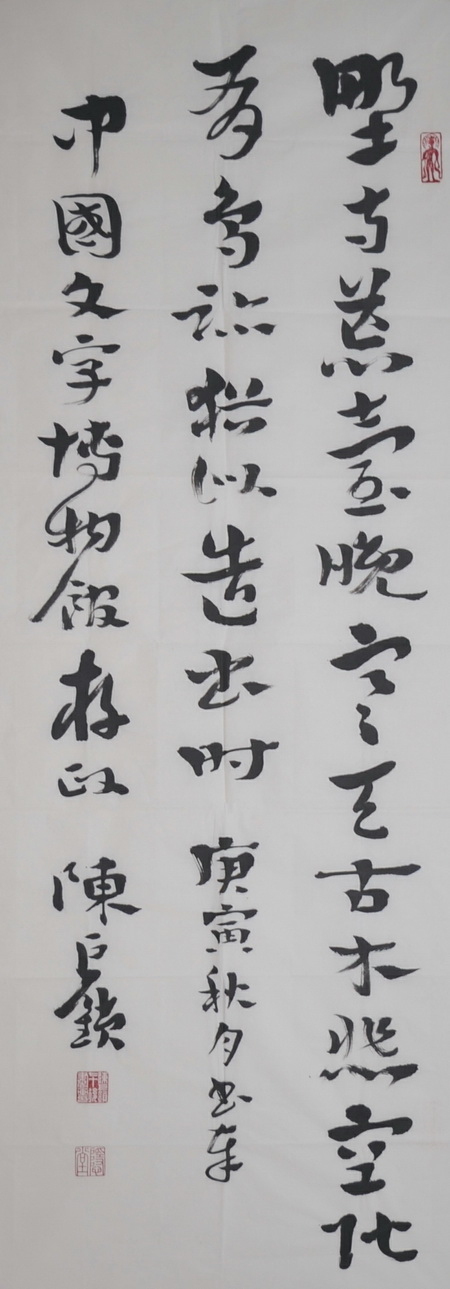 野寺荒臺晚寒天古木悲空階
有鳥跡猶似造書時 庚寅秋月書奉
中國文字博物館存政 陳巨鎖